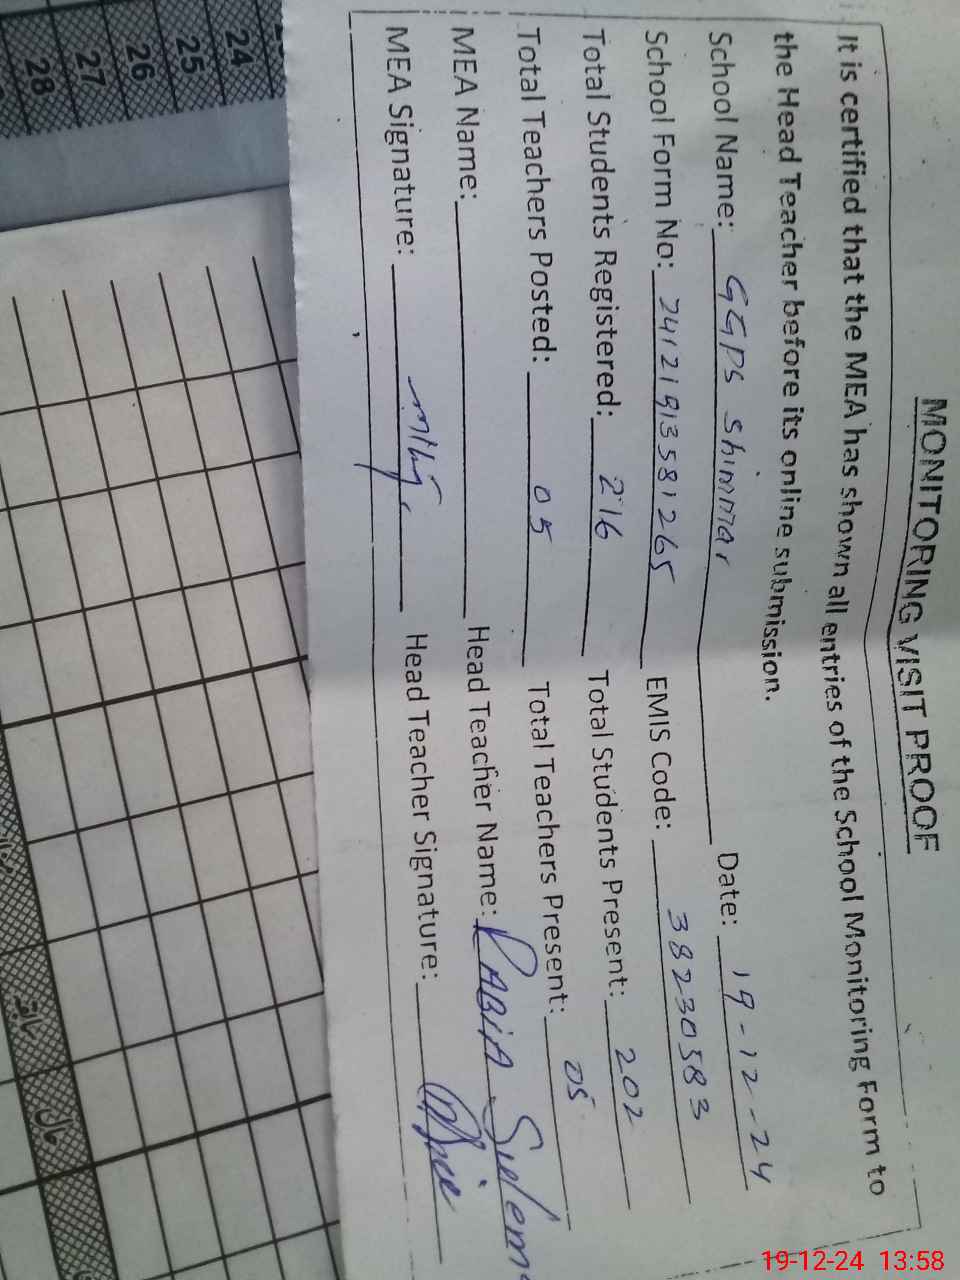 MONITORING VISIT PROOF
It is certified that the MEA has shown all entries of the School Monitoring Form to
the Head Teacher before its online submission.
School Name: GGPS Shimmar Date: 19-12-24
School Form No: 24121913581265 EMIS Code: 38230583
Total Students Registered: 216 Total Students Present: 202
Total Teachers Posted: 05 Total Teachers Present: 05
MEA Name: Head Teacher Name: RABIA
MEA Signature: Head Teacher Signature:
24
25
26
27
28
19-12-24 13:58